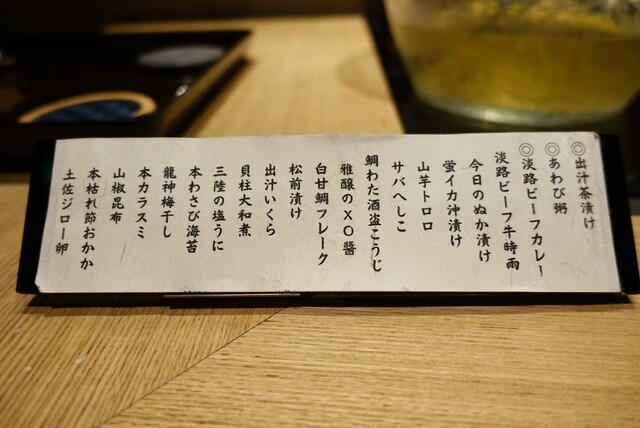 ◎出汁茶漬け
◎あわび粥
◎淡路ビーフカレー
淡路ビーフ牛時雨
今日のぬか漬け
蛍イカ沖漬け
山芋トロロ
サバへしこ
鯛わた酒盗こうじ
雅醸のXO醬
白甘鯛フレーク
松前漬け
出汁いくら
貝柱大和煮
三陸の塩うに
本わさび海苔
龍神梅干し
本カラスミ
山椒昆布
本枯れ節おかか
土佐ジロー卵